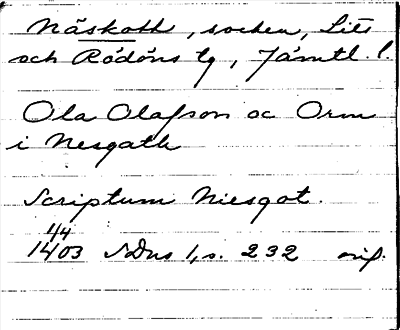 Näskott, socken, Lits
och Rödöns tg, Jämtl. l.
Ola Olafson oc Orm
i Nesgath
Scriptum Niesgot.
1/4
1403 SDns 1, s. 232 orig.